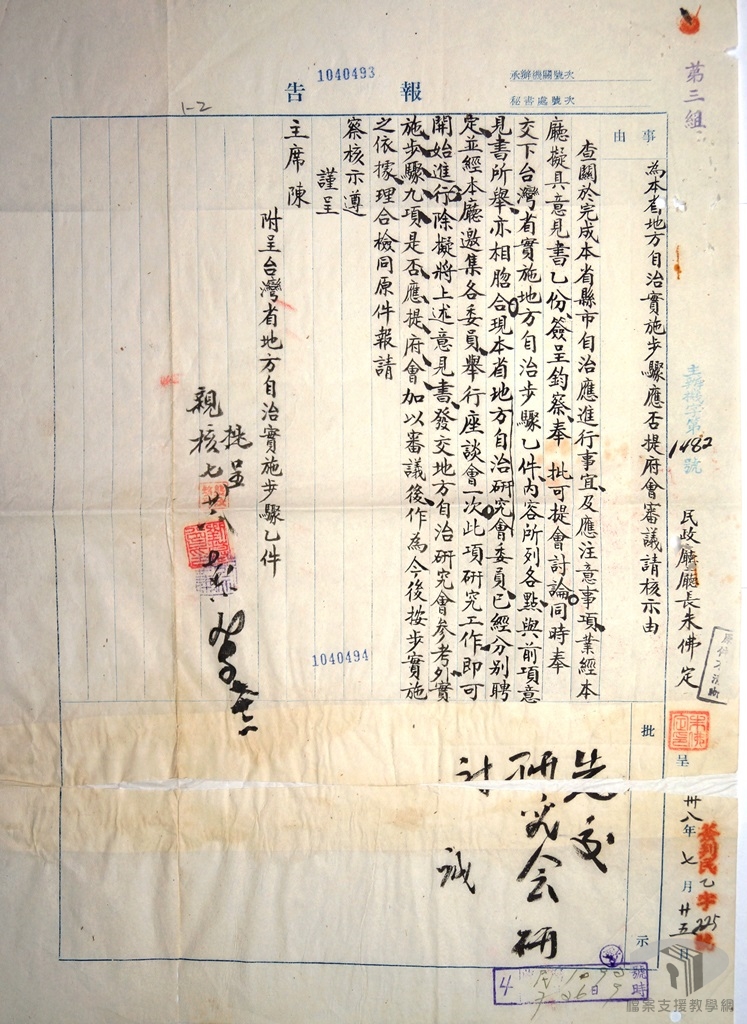 第三組
1040493
報告
承辦機關號次
秘書處號次
1-2
事由
為本省地方自治實施步驟應否提府會審議請核示由
民政廳廳長朱佛定
呈
卅八年七月廿五日
簽到民乙字225號
1482
號
查關於完成本省縣市自治應進行事宜及應注意事項業經本
廳擬具意見書乙份簽呈鈞察奉 批可提會討論同時奉
交下台灣省實施地方自治步驟乙件內容所列各點與前項意
見書所舉亦相脗合現本省地方自治研究會委員已經分別聘
定並經本廳邀集各委員舉行座談會一次此項研究工作即可
開始進行除擬將上述意見書發交地方自治研究會參考外實
施步驟九項是否應提府會加以審議後作為今後按步實施
之依據理合檢同原件報請
察核示遵
謹呈
主席陳
附呈台灣省地方自治實施步驟乙件
批呈
親核 七
1040494
批示
先交
研究會研
討
誠
號
時
日
檔案支援教學網